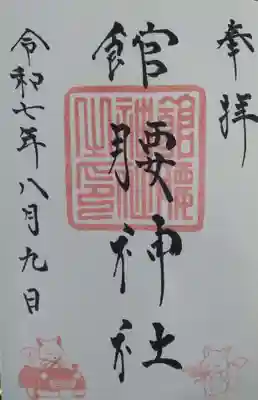 奉拝
館腰神社
館腰神社之印
令和七年八月九日